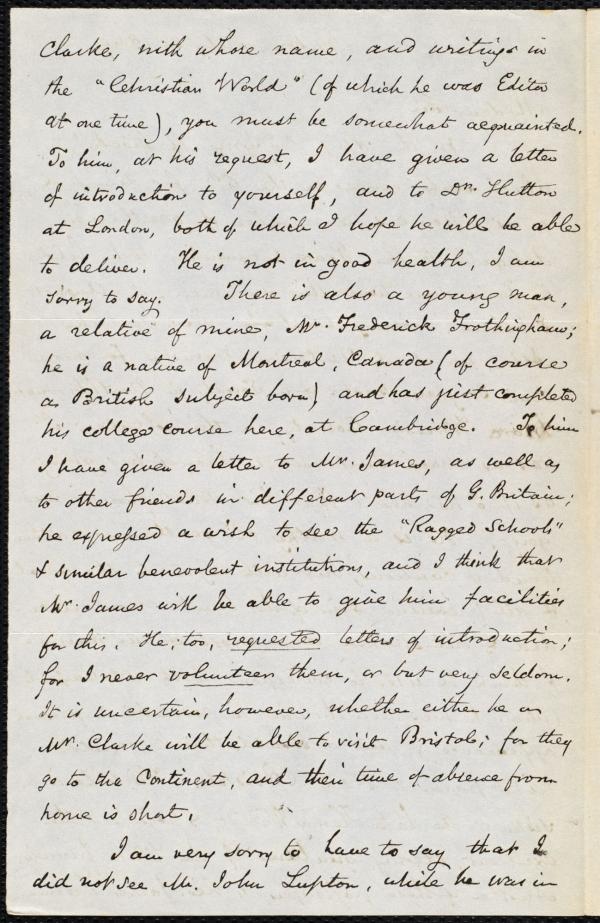 Clarke, with whose name, and writings in
the "Christian World" (of which he was Editor
at one time), you must be somewhat acquainted.
To him, at his request, I have given a letter
of introduction to yourself, and to Dr. Hutton
at London, both of which I hope he will be able
to deliver. He is not in good health, I am
sorry to say. There is also a young man,
a relative of mine, Mr. Frederick Frothingham;
he is a native of Montreal, Canada (of course
a British subject born) and has just completed
his college course here, at Cambridge. To him
I have given a letter to Mr. James, as well as
to other friends in different parts of G. Britain;
he expressed a wish to see the "Ragged Schools"
& similar benevolent institutions, and I think that
Mr. James will be able to give him facilities
for this. He, too, requested letters of introduction;
for I never volunteer them, or but very seldom.
It is uncertain, however, whether either he or
Mr. Clarke will be able to visit Bristol; for they
go to the Continent, and their time of absence from
home is short.
I am very sorry to have to say that I
did not see Mr. John Lupton, while he was in